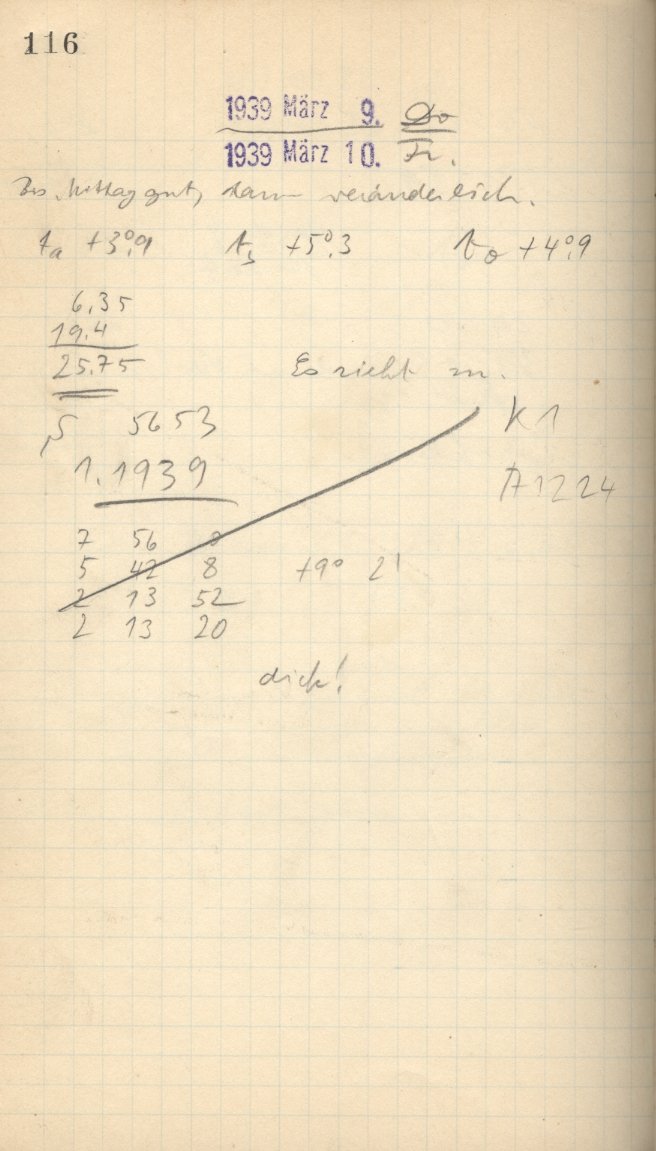 116
1939 März 9. Do
1939 März 10. Fr.
Bis Mittag gut, dann veränderlich.
ta +3°,9 ts +5°,3 to +4°,9
6,35
19,4
25,75
Es zieht zu.
S 5653 K 1
1.1939
A1224
7 56 0
5 42 8 +9° 2'
2 13 52
2 13 20
dick!